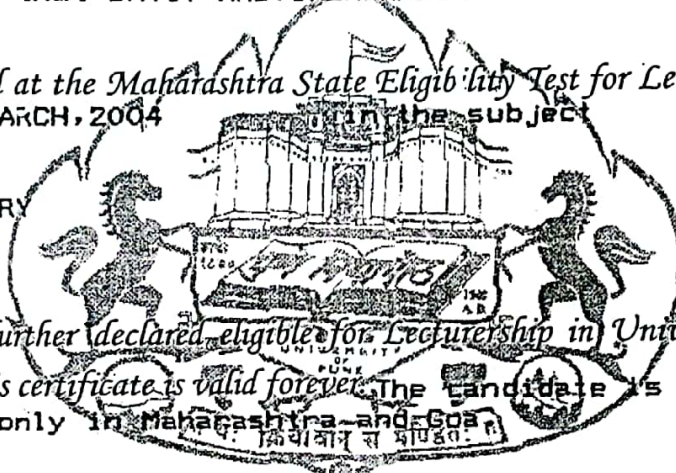 at the Maharashtra State Eligib'lity Test for Le
ARCH, 2004 in the subject
RY
urther declared eligible for Lecturership in Univ
UNIVERSITY
OF
PUNE
s certificate is valid forever. The candidate is
only in Maharashtra and Goa